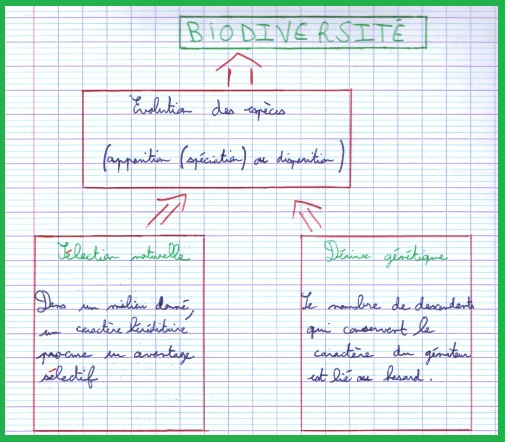 BIODIVERSITÉ
Evolution des espèces
(apparition (spéciation) ou disparition)
Sélection naturelle
Dans un milieu donné,
un caractère héréditaire
procure un avantage
sélectif
Dérive génétique
Le nombre de descendants
qui conservent le
caractère du géniteur
est lié au hasard.